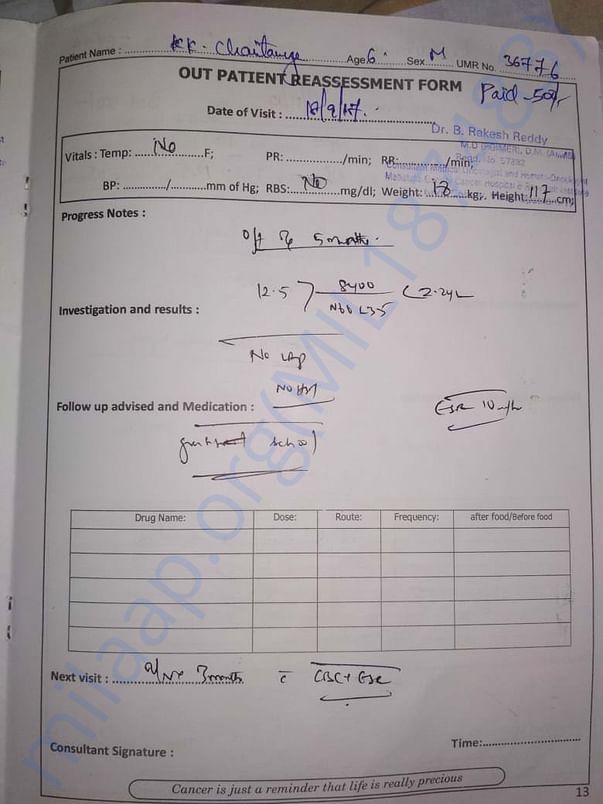 Patient Name : KK. Chaitanya Age 6 Sex M UMR No. 36776
OUT PATIENT REASSESSMENT FORM
Paid - 50/-
Date of Visit : 18/9/17
Dr. B. Rakesh Reddy
Vitals : Temp: No F; PR: /min; RR: /min;
BP: / mm of Hg; RBS: No mg/dl; Weight: 18 kg; Height: 117 cm;
Progress Notes :
Off Rx 5 months
12.5 8400 2.24L
N60 L35
Investigation and results :
No LAP
No HSM
Follow up advised and Medication :
ESR 10
school
Drug Name: Dose: Route: Frequency: after food/Before food
Next visit : 3 months c CBC + ESR
Consultant Signature : Time:
Cancer is just a reminder that life is really precious
13
milaap.org